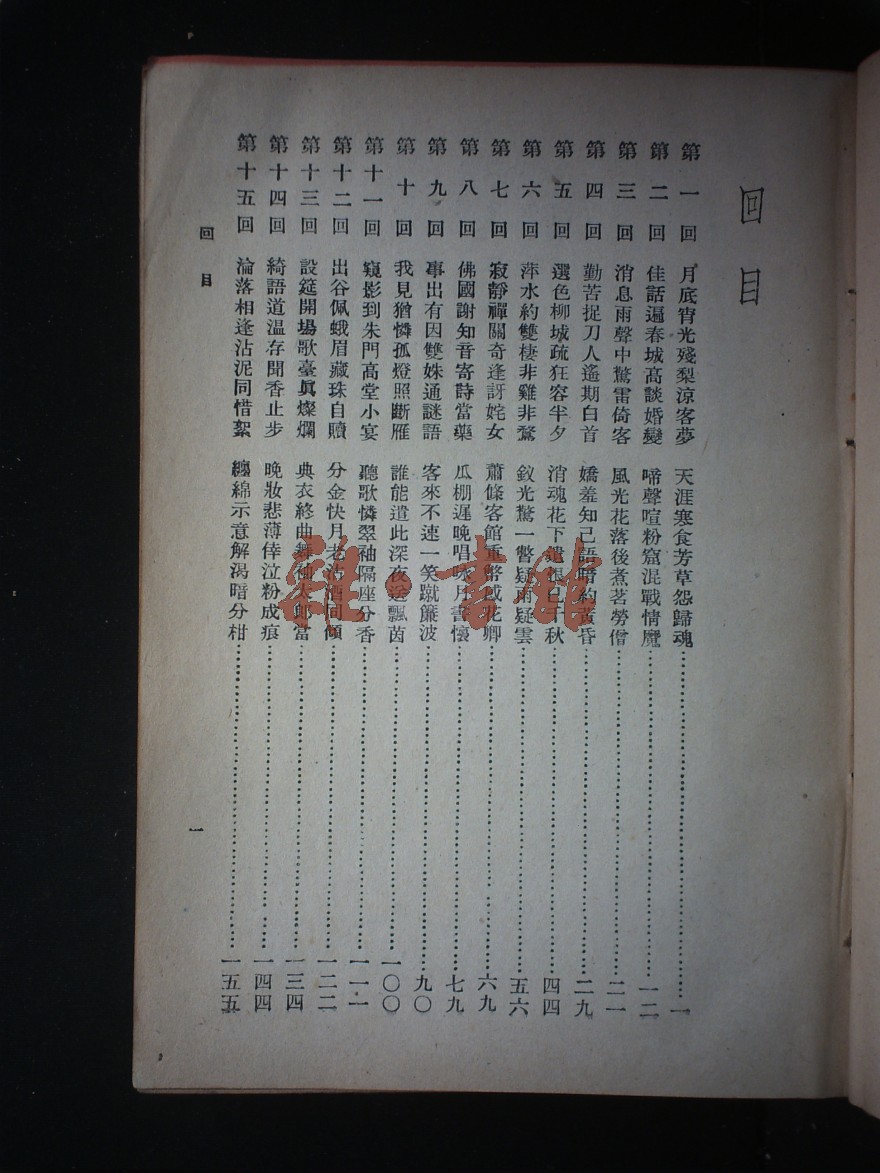 回目
第一回 月底宵光殘梨涼客夢 天涯寒食芳草怨歸魂……一
第二回 佳話遍春城高談婚變 啼聲喧粉窟混戰情魔……一二
第三回 消息雨聲中驚雷倚客 風光花落後煮茗勞僧……二一
第四回 勤苦捉刀人遙期白首 嬌羞知己語暗約黃昏……二九
第五回 選色柳城疏狂容半夕 消魂花下遺恨已千秋……四四
第六回 萍水約雙棲非雞非鶩 釵光驚一瞥疑雨疑雲……五六
第七回 寂靜禪關奇逢訝姹女 蕭條客館重幣感花卿……六九
第八回 佛國謝知音寄詩當藥 瓜棚遲晚唱咏月書懷……七九
第九回 事出有因雙姝通謎語 客來不速一笑蹴簾波……九〇
第十回 我見猶憐孤燈照斷雁 誰能遣此深夜送飄茵……一〇〇
第十一回 窺影到朱門高堂小宴 聽歌憐翠袖隔座分香……一一一
第十二回 出谷佩蛾眉藏珠自贖 分金快月老沽酒同傾……一二二
第十三回 設筵開場歌臺眞燦爛 典衣終曲舞袖太郎當……一三四
第十四回 綺語道溫存聞香止步 晚妝悲薄倖泣粉成痕……一四四
第十五回 淪落相逢沾泥同惜絮 纏綿示意解渴暗分柑……一五五
回目
一
雜·書館